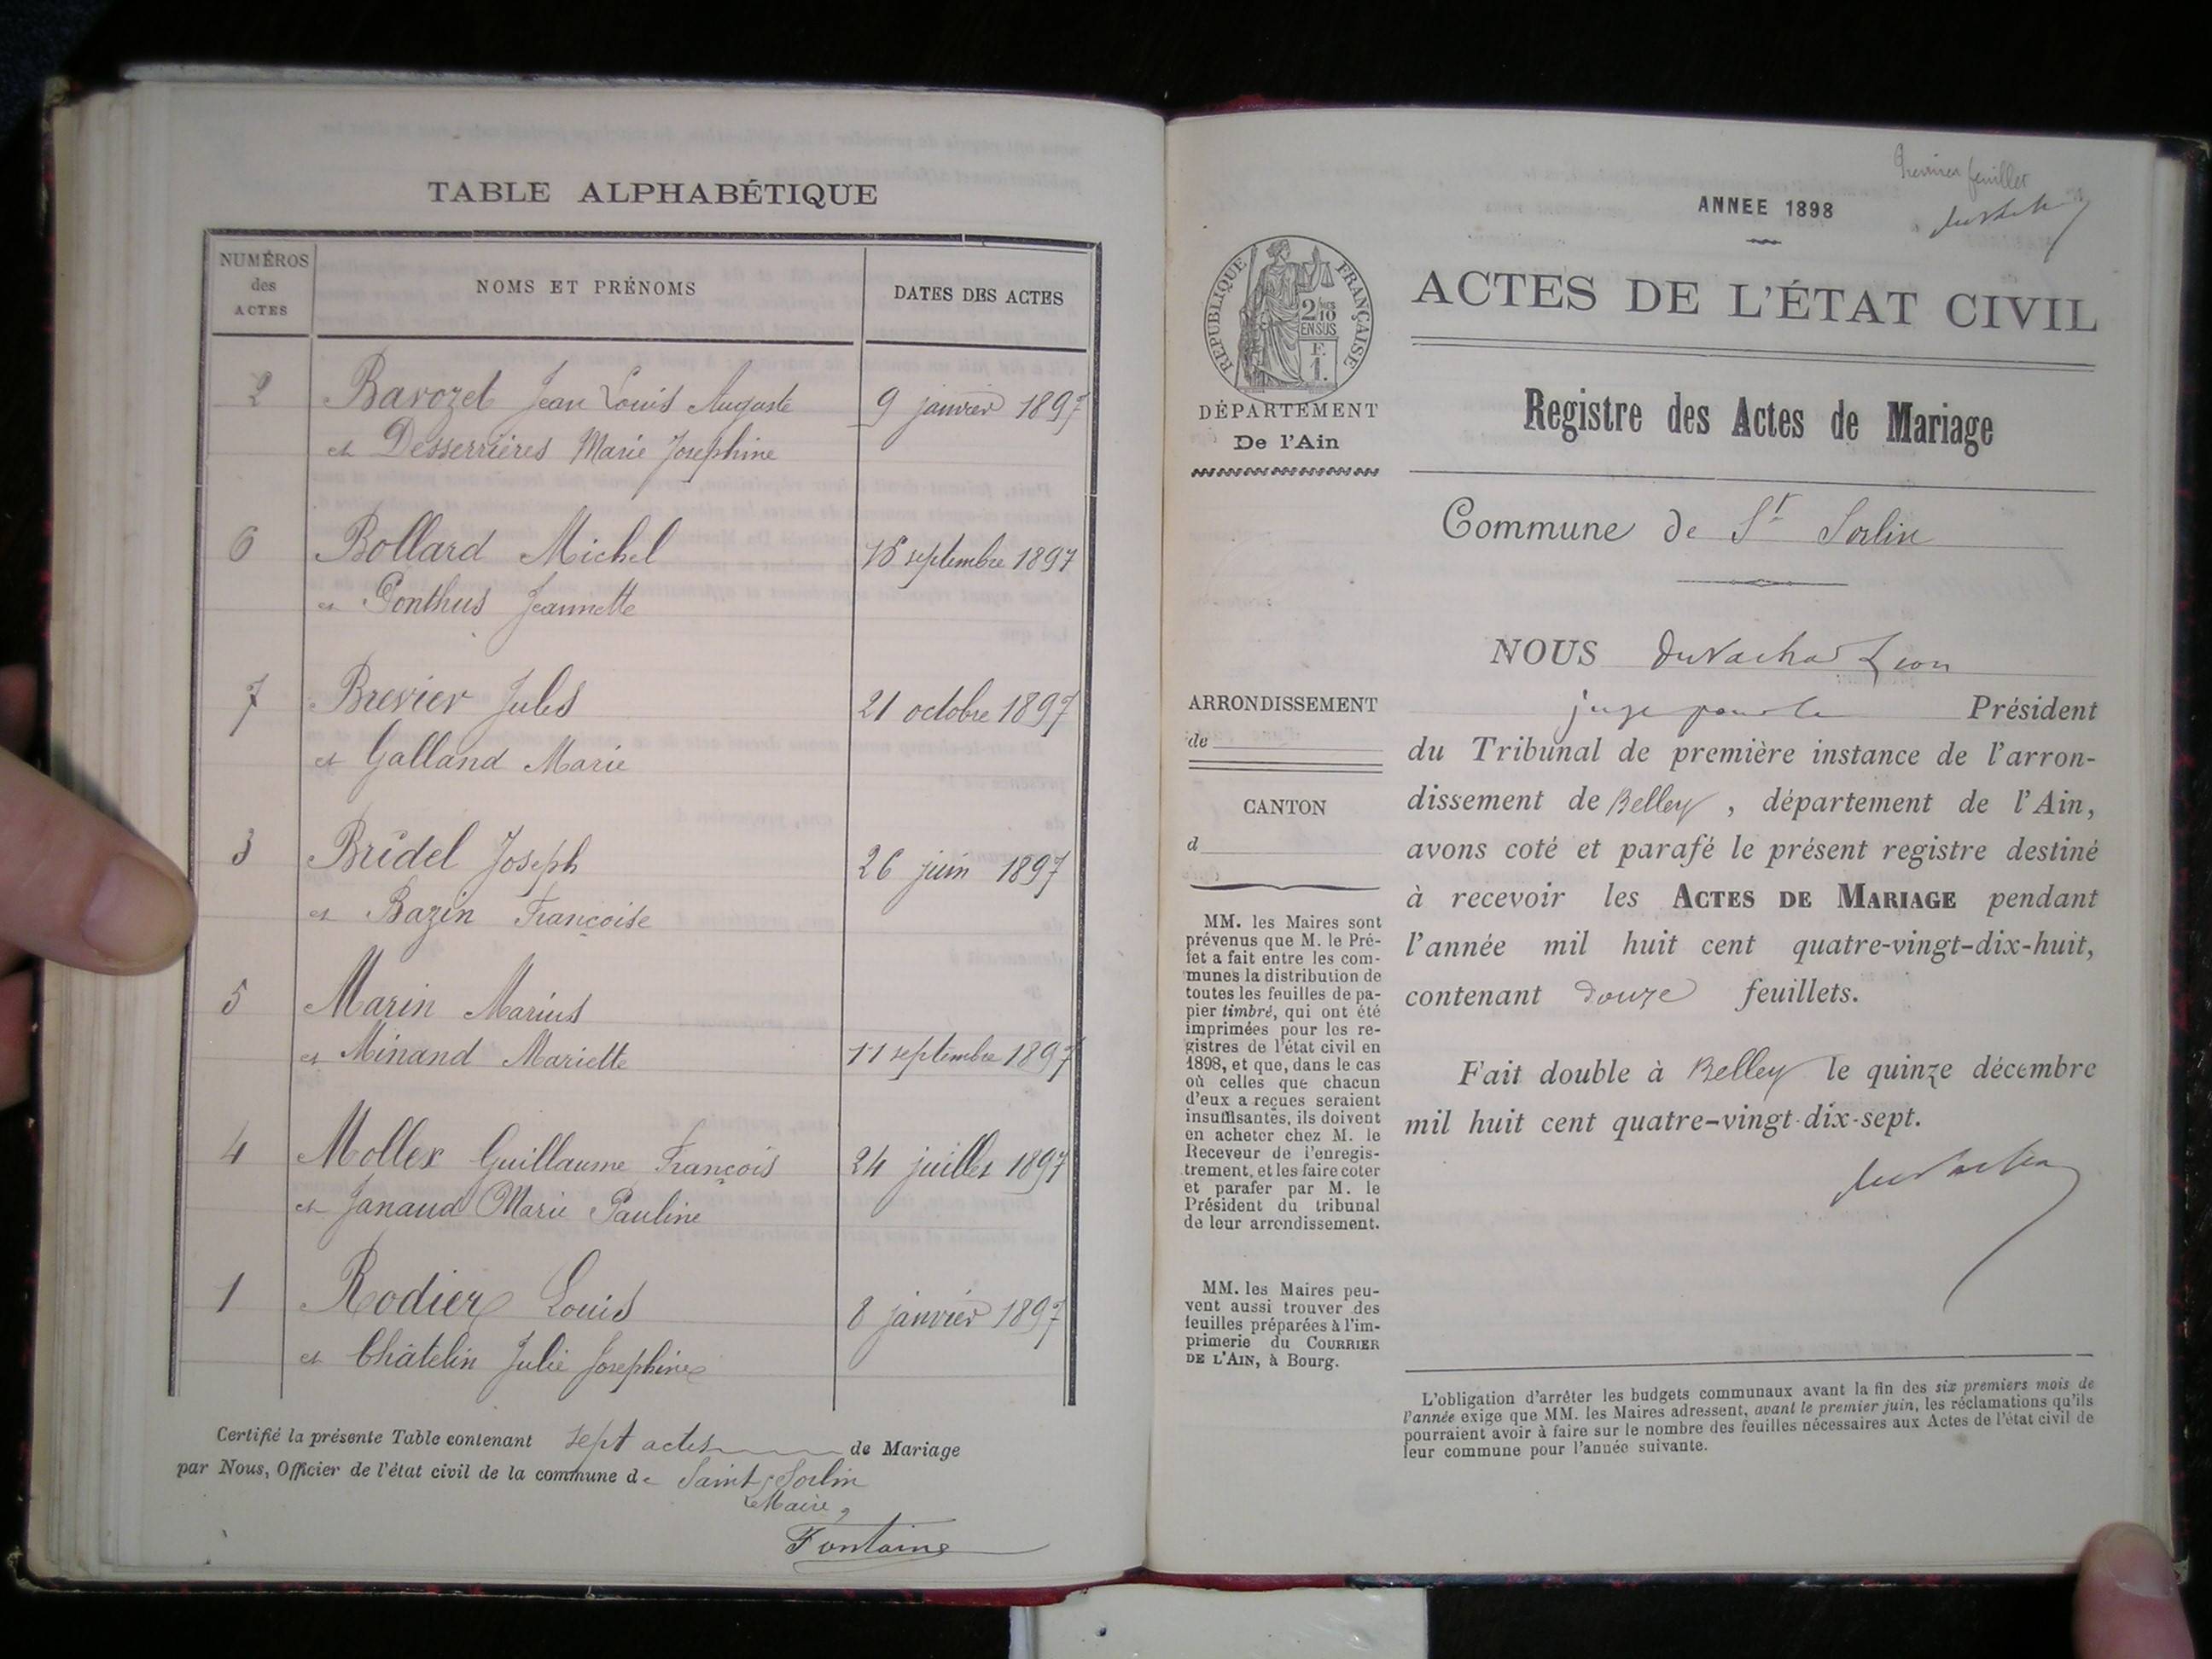 TABLE ALPHABÉTIQUE
NUMÉROS
des
ACTES
NOMS ET PRÉNOMS
DATES DES ACTES
2 Bavozet Jean Louis Auguste 9 janvier 1897
et Desserrières Marie Josephine
6 Bollard Michel septembre 1897
et Ponthus Jeannette
7 Brevier Jules 21 octobre 1897
et Galland Marie
3 Bridel Joseph 26 juin 1897
et Bazin Françoise
5 Marin Marius
et Minand Mariette 11 septembre 1897
4 Mollex Guillaume François 24 juillet 1897
et Janaud Marie Pauline
1 Rodier Louis 8 janvier 1897
et Châtelin Julie Josephine
Certifié la présente Table contenant sept actes de Mariage
par Nous, Officier de l'état civil de la commune de Saint Sorlin
Le Maire,
Fontaine
Premier feuillet
ANNEE 1898
RÉPUBLIQUE FRANÇAISE
2/10
EN SUS
F.
1.
ACTES DE L'ÉTAT CIVIL
DÉPARTEMENT
De l'Ain
Registre des Actes de Mariage
Commune de St Sorlin
NOUS Léon
juge pour le Président
du Tribunal de première instance de l'arron-
dissement de Belley, département de l'Ain,
avons coté et parafé le présent registre destiné
à recevoir les ACTES DE MARIAGE pendant
l'année mil huit cent quatre-vingt-dix-huit,
contenant douze feuillets.
Fait double à Belley le quinze décembre
mil huit cent quatre-vingt-dix-sept.
ARRONDISSEMENT
de
CANTON
d
MM. les Maires sont
prévenus que M. le Pré-
fet a fait entre les com-
munes la distribution de
toutes les feuilles de pa-
pier timbré, qui ont été
imprimées pour les re-
gistres de l'état civil en
1898, et que, dans le cas
où celles que chacun
d'eux a reçues seraient
insuffisantes, ils doivent
en acheter chez M. le
Receveur de l'enregis-
trement, et les faire coter
et parafer par M. le
Président du tribunal
de leur arrondissement.
MM. les Maires peu-
vent aussi trouver des
feuilles préparées à l'im-
primerie du COURRIER
DE L'AIN, à Bourg.
L'obligation d'arrêter les budgets communaux avant la fin des six premiers mois de
l'année exige que MM. les Maires adressent, avant le premier juin, les réclamations qu'ils
pourraient avoir à faire sur le nombre des feuilles nécessaires aux Actes de l'état civil de
leur commune pour l'année suivante.